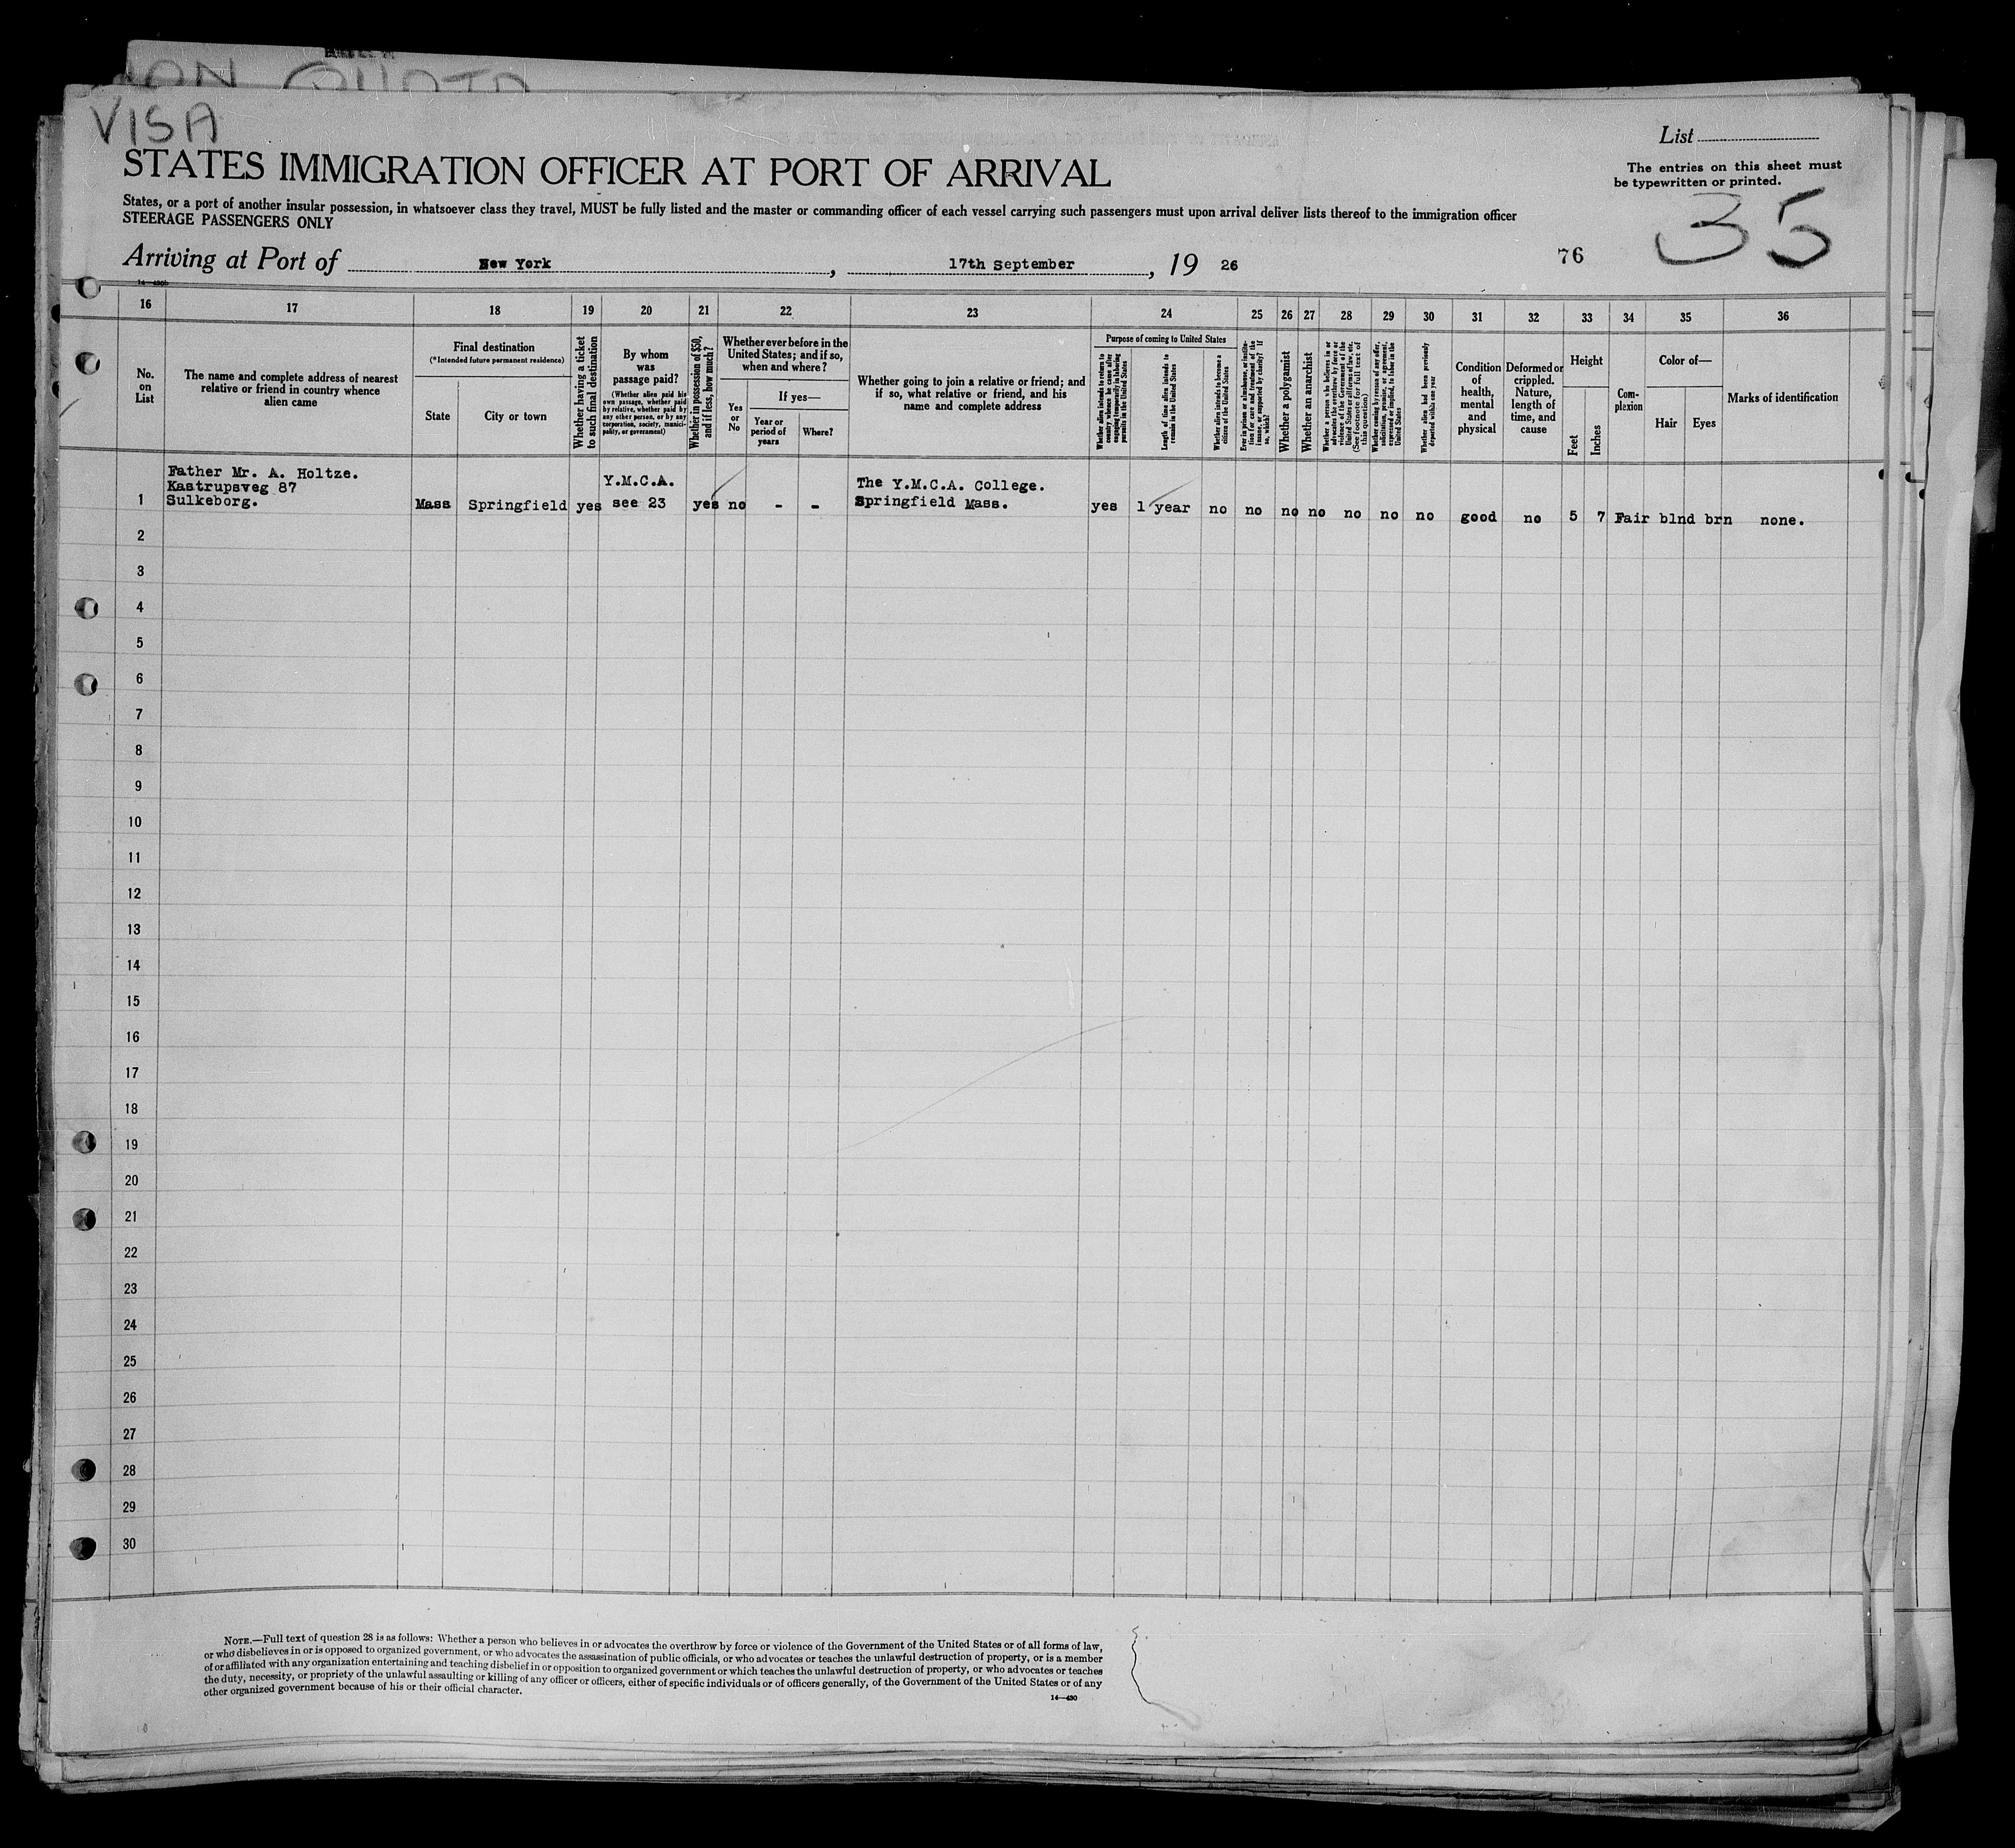 VISA
STATES IMMIGRATION OFFICER AT PORT OF ARRIVAL
List
The entries on this sheet must
be typewritten or printed.
States, or a port of another insular possession, in whatsoever class they travel, MUST be fully listed and the master or commanding officer of each vessel carrying such passengers must upon arrival deliver lists thereof to the immigration officer
STEERAGE PASSENGERS ONLY
35
Arriving at Port of New York, 17th September, 19 26
76
16 17 18 19 20 21 22 23 24 25 26 27 28 29 30 31 32 33 34 35 36
No.
on
List
The name and complete address of nearest
relative or friend in country whence
alien came
Final destination
(*Intended future permanent residence)
State
City or town
Whether having a ticket
to such final destination
By whom
was
passage paid?
(Whether alien paid his
own passage, whether paid
by relative, whether paid by
any other person, or by any
corporation, society, munici-
pality, or government)
Whether in possession of $50,
and if less, how much?
Whether ever before in the
United States; and if so,
when and where?
Yes
or
No
If yes—
Year or
period of
years
Where?
Whether going to join a relative or friend; and
if so, what relative or friend, and his
name and complete address
Purpose of coming to United States
Whether alien intends to return to
country whence he came after
engaging temporarily in laboring
pursuits in the United States
Length of time alien intends to
remain in the United States
Whether alien intends to become a
citizen of the United States
Ever in prison or almshouse, or institu-
tion for care and treatment of the
insane, or supported by charity? If
so, which?
Whether a polygamist
Whether an anarchist
Whether a person who believes in or
advocates the overthrow by force or
violence of the Government of the
United States or all forms of law, etc.
(See footnote for full text of
this question)
Whether coming by reason of any offer,
solicitation, promise, or agreement,
expressed or implied, to labor in the
United States
Whether alien had been previously
deported within one year
Condition
of
health,
mental
and
physical
Deformed or
crippled.
Nature,
length of
time, and
cause
Height
Feet
Inches
Com-
plexion
Color of—
Hair
Eyes
Marks of identification
Father Mr. A. Holtze.
Kastrupsveg 87
Sulkeborg.
Y.M.C.A.
The Y.M.C.A. College.
Springfield Mass.
1 Mass Springfield yes see 23 yes no - - yes 1 year no no no no no no no good no 5 7 Fair blnd brn none.
2
3
4
5
6
7
8
9
10
11
12
13
14
15
16
17
18
19
20
21
22
23
24
25
26
27
28
29
30
NOTE.—Full text of question 28 is as follows: Whether a person who believes in or advocates the overthrow by force or violence of the Government of the United States or of all forms of law,
or who disbelieves in or is opposed to organized government, or who advocates the assassination of public officials, or who advocates or teaches the unlawful destruction of property, or is a member
of or affiliated with any organization entertaining and teaching disbelief in or opposition to organized government or which teaches the unlawful destruction of property, or who advocates or teaches
the duty, necessity, or propriety of the unlawful assaulting or killing of any officer or officers, either of specific individuals or of officers generally, of the Government of the United States or of any
other organized government because of his or their official character.
14—430